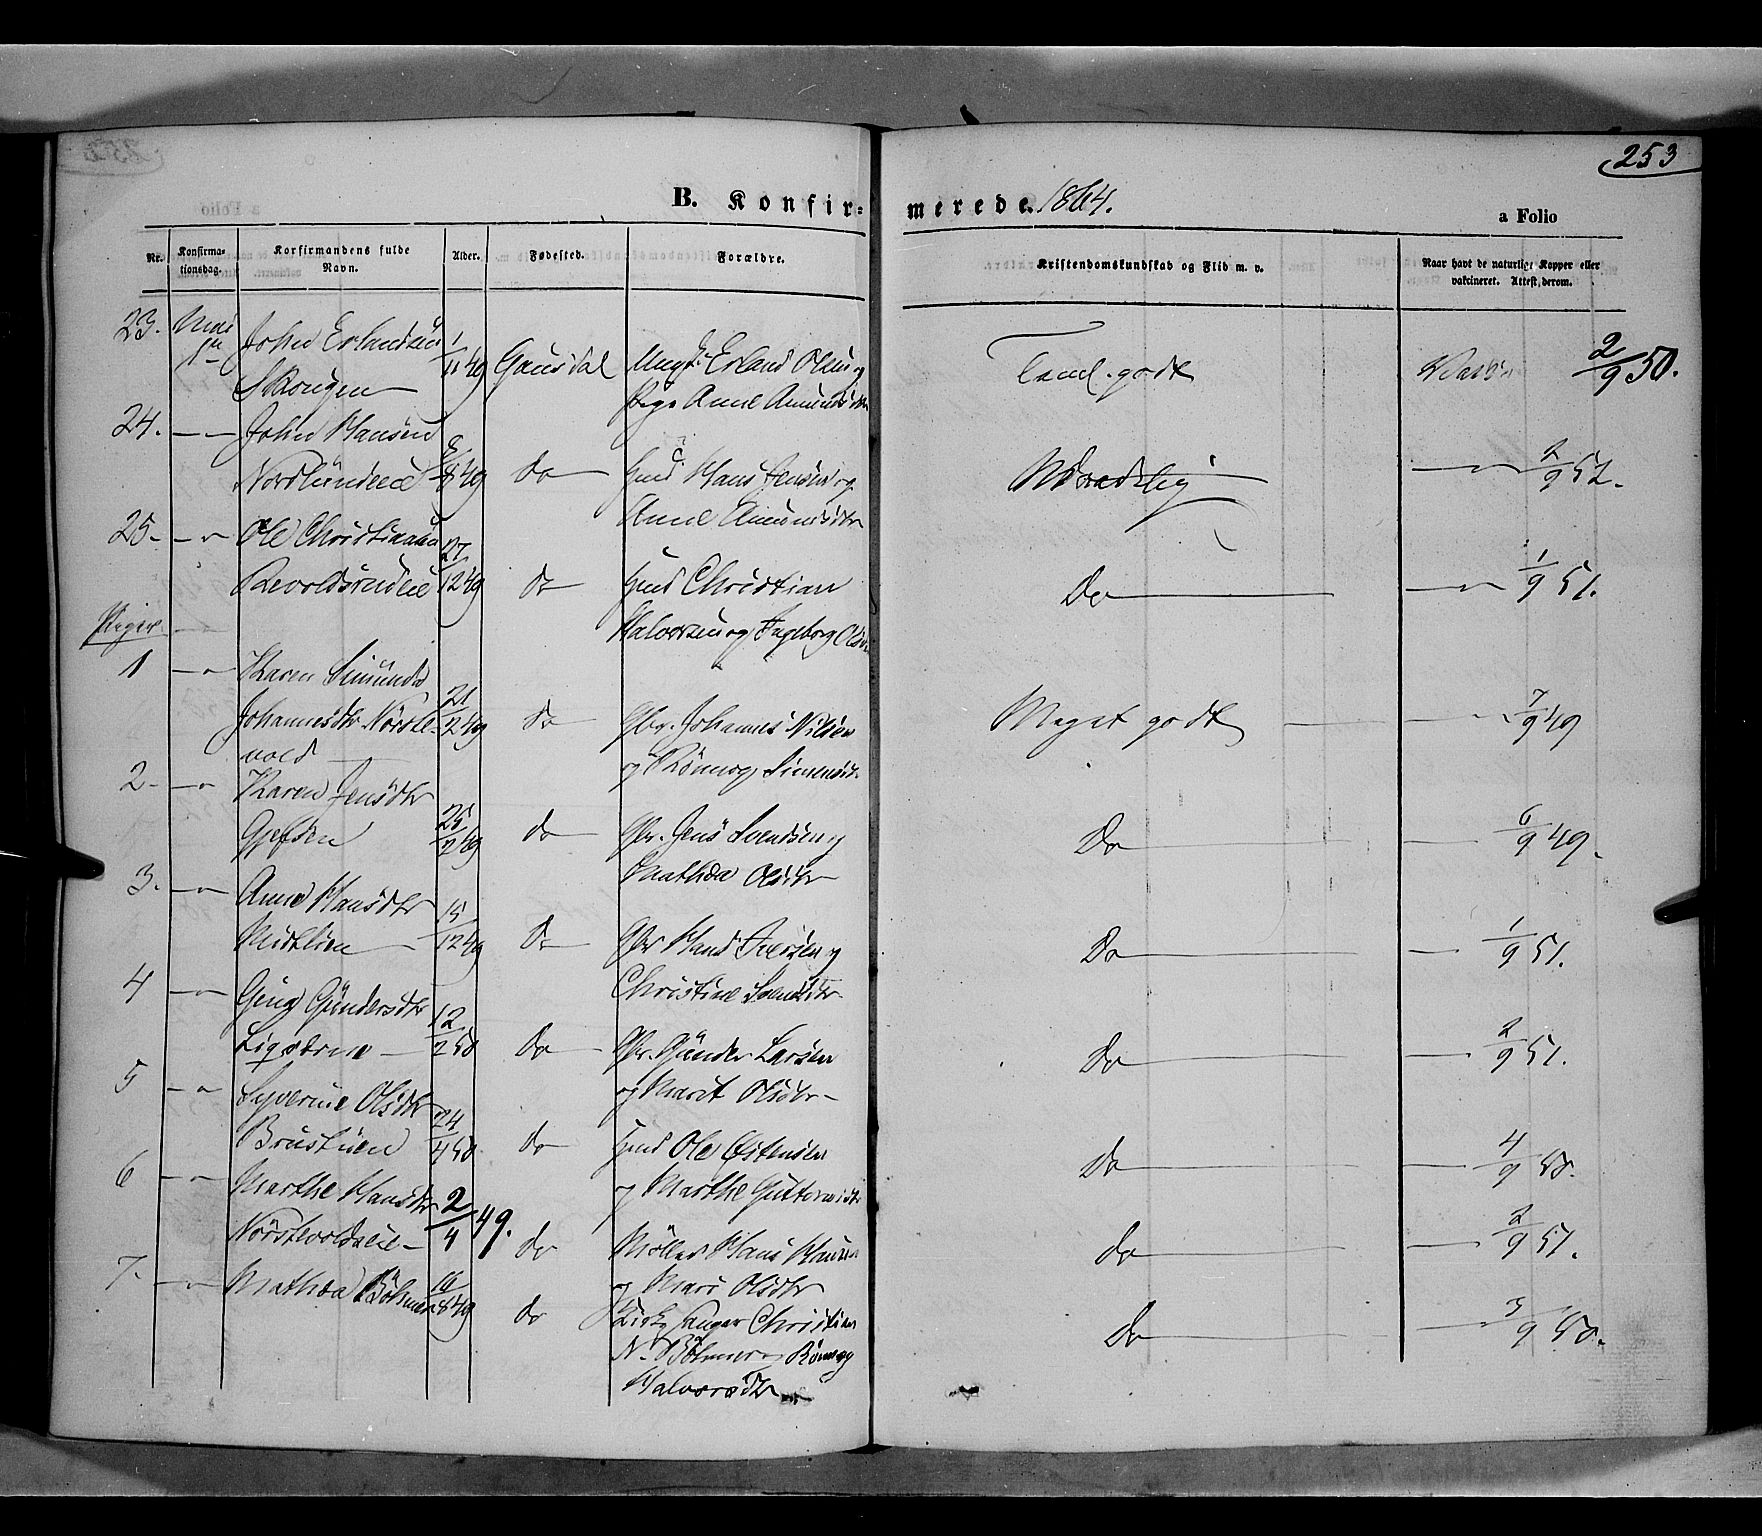 253
B. Konfir- merede. 1864.
a Folio
Nr. Konfirma-tionsdag. Korfirmandens fulde Navn. Alder. Fødested. Forældre. Kristendomskundskab og Flid m. v. Naar havt de naturlige Kopper eller vakcineret. Attest derom.
23. Mai 1ste John Erlandsen 1/11 49 Gausdal Ungk. Erland Olsen og Taml. godt Vaks. 2/9 50.
Skougen Pige Anne Amundsdtr
24. — John Hansen
Nordlundeie 8/8 49 do Husm. Hans Jensen og Maadelig — 2/9 52.
Anne Amundsdtr
25. — Ole Christiansen 27/12 49
Revoldsindeie do Husm. Christian Do — 1/9 51.
Halvorsen og Ingeborg Olsdtr
Piger
1 — Karen Simunda
Johannesdtr Nörste- 21/2 49 do Gbr. Johannes Nilsen Meget godt — 7/9 49
vold og Rönnog Simensdtr
2. — Karen Jensdtr
Gjefsen 25/2 49 do Gbr. Jens Svendsen og Do — 6/9 49.
Mathea Olsdtr
3. — Anne Hansdtr 15/12 49
Midtlien do Gbr Hans Iversen og Do — 1/9 51.
Christine Svendsdtr
4 — Gunder­sdtr 12/2 50
do Gbr. Gunder Larsen Do — 2/9 51.
og Marit Olsdtr
5 — Syverine Olsdtr 24/4 50
Brustuen do Husm Ole Østensen Do — 4/9 50.
og Marthe Guttormsdtr
6 — Marthe Hansdtr 2/4 49.
Nörstevoldseie do Möller Hans Hansen Do — 2/9 51.
og Mari Olsdtr
7. — Mathea Böhmer 16/8 49 do Kirkesanger Christian Do — 3/9 50.
N. Böhmer og Rönnog
Halvorsdtr